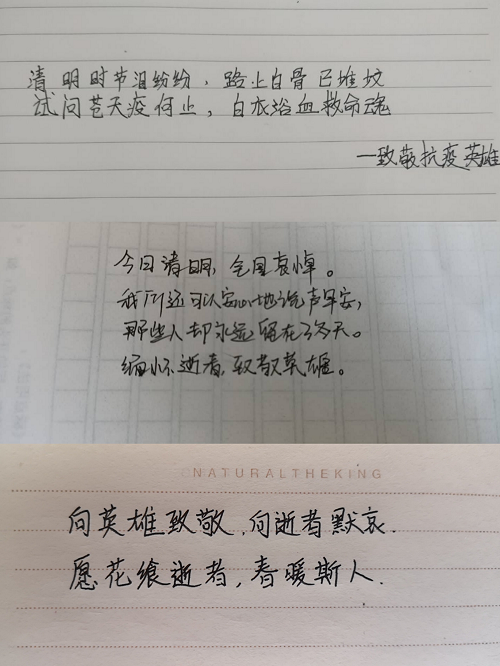 清明时节泪纷纷，路上白骨已堆坟
试问苍天疫何止，白衣浴血救命魂
一致敬抗疫英雄
今日清明，全国哀悼。
我们还可以安心地说声早安，
那些人却永远留在了冬天。
缅怀逝者，致敬英雄。
NATURALTHEKING
向英雄致敬，向逝者默哀．
愿花飨逝者，春暖斯人．